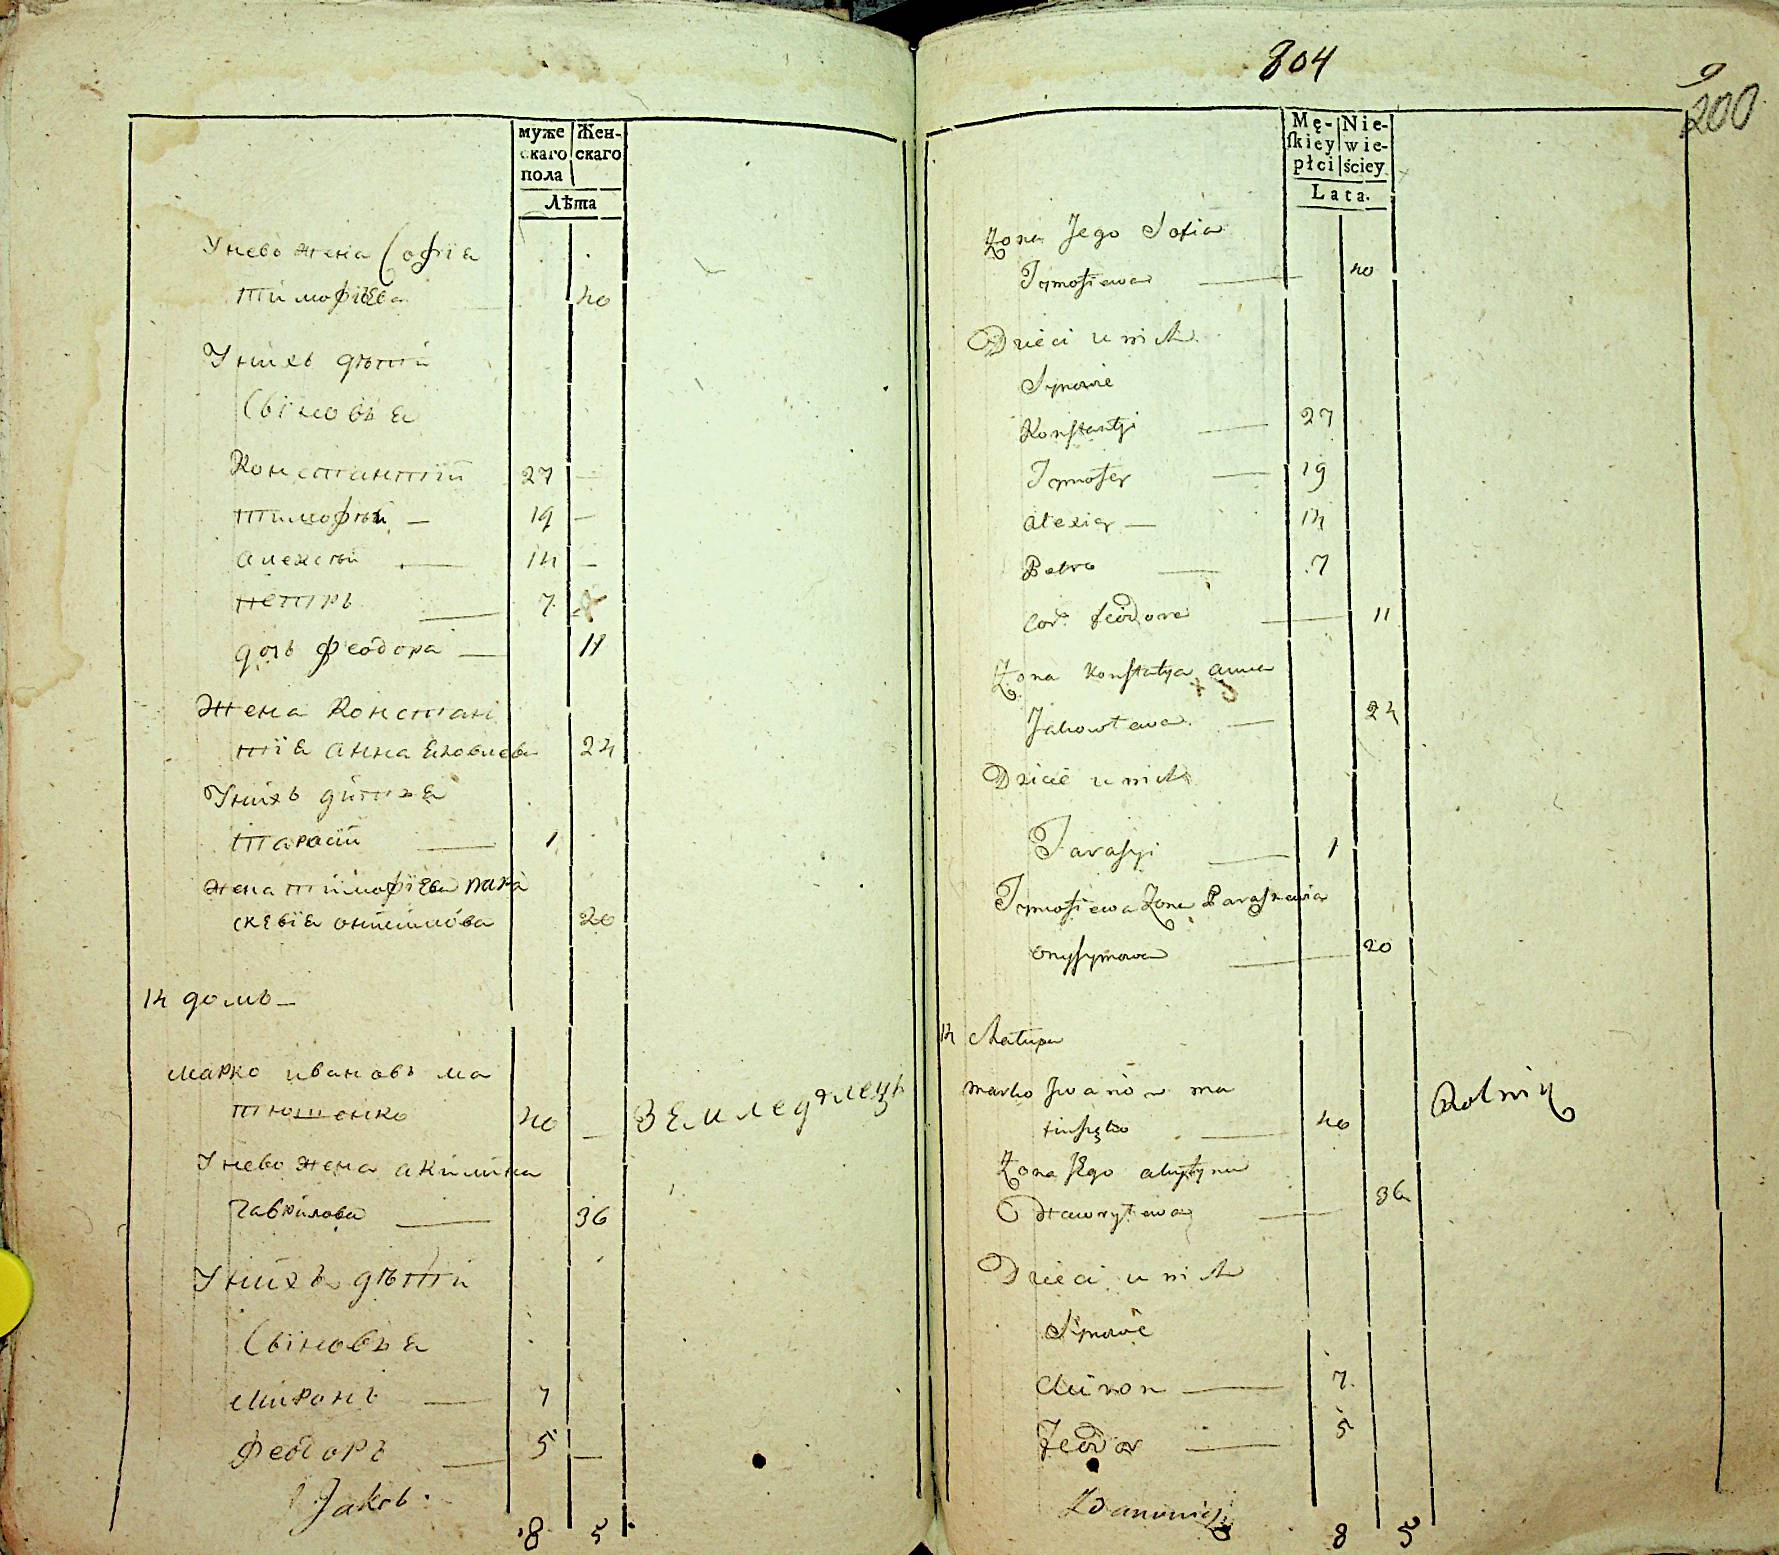 муже скаго пола
Жен- скаго
Лѣта
Унево жена Софія
тимофіева 40
Унихъ дѣти
Сыновья
Константій 27 —
тимофѣй — 19 —
алексѣй — 14 —
петръ — 7
дочь феодора — 11
Жена Констан
тія анна яковлева 24
Унихъ дитя
тарасій — 1
жена тимофіева пара
скевія онисимова 20
14 домъ —
марко ивановъ ма
тюшенко 40 — Земледѣлецъ
Унево жена акилина
гаврилова — 36
Унихъ дѣти
Сыновья
миронъ — 7
феодоръ — 5 —
Jakob
8 5
804
200
Mę- skiey płci
Nie- wie- ściey
Lata.
Żona Jego Sofia
Tymofiewa — 40
Dzieci u nich
Synowie
Konstantyi — 27
Tymofey — 19
alexiey — 14
Petro — 7
cor. feodora — 11
Żona Konstatya anna
Jakowlewa — 24
Dziecie u nich
Tarasyi — 1
Tymofiewa Żona Paraskewia
onysymowa — 20
14 Chałupa
marko Jwanow ma
tiuszęko — 40 Rolnik
Żona Jego akylyna
Hawryłewa — 36
Dzieci u nich
Synowie
Miron — 7
feodor — 5
Zdanowicz
8 5